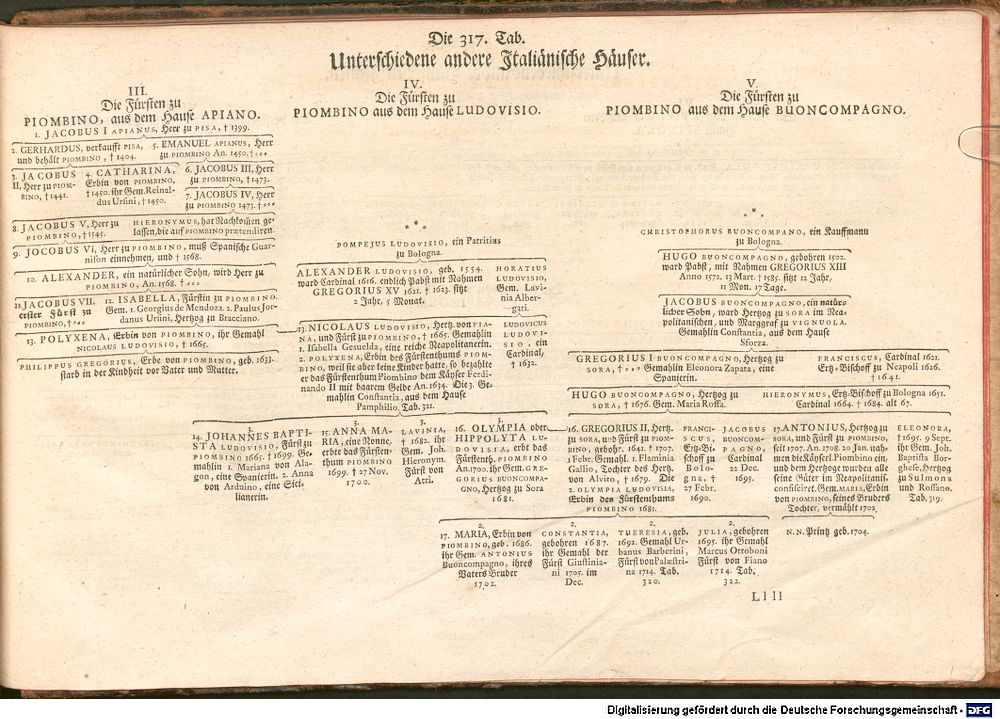 Die 317. Tab.
Unterschiedene andere Italiänische Häuser.
III.
Die Fürsten zu
PIOMBINO, aus dem Hause APIANO.
1. JACOBUS I APIANUS, Herr zu PISA, † 1399.
2. GERHARDUS, verkaufft PISA,
und behält PIOMBINO, † 1404.
5. EMANUEL APIANUS, Herr
zu PIOMBINO An. 1450. † - - -
3. JACOBUS
II, Herr zu PIOM-
BINO, † 1441.
4. CATHARINA,
Erbin von PIOMBINO,
† 1450. ihr Gem. Reinal-
dus Ursini, † 1450.
6. JACOBUS III, Herr
zu PIOMBINO, † 1473.
7. JACOBUS IV, Herr
zu PIOMBINO 1473. † - - -
8. JACOBUS V, Herr zu
PIOMBINO, † 1545.
HIERONYMUS, hat Nachkom̃en ge-
lassen, die auf PIOMBINO prætendiren.
9. JOCOBUS VI, Herr zu PIOMBINO, muß Spanische Guar-
nison einnehmen, und † 1568.
10. ALEXANDER, ein natürlicher Sohn, wird Herr zu
PIOMBINO, An. 1568. † - - -
11. JACOBUS VII.
erster Fürst zu
PIOMBINO, † - - -
12. ISABELLA, Fürstin zu PIOMBINO.
Gem. 1. Georgius de Mendoza. 2. Paulus Jor-
danus Ursini, Hertzog zu Bracciano.
13. POLYXENA, Erbin von PIOMBINO, ihr Gemahl
NICOLAUS LUDOVISIO, † 1665.
PHILIPPUS GREGORIUS, Erbe von PIOMBINO, geb. 1633.
starb in der Kindheit vor Vater und Mutter.
IV.
Die Fürsten zu
PIOMBINO aus dem Hause LUDOVISIO.
* *
*
POMPEJUS LUDOVISIO, ein Patritius
zu Bologna.
ALEXANDER LUDOVISIO, geb. 1554.
ward Cardinal 1616. endlich Pabst mit Nahmen
GREGORIUS XV 1621. † 1623. sitzt
2 Jahr, 5 Monat.
HORATIUS
LUDOVISIO,
Gem. Lavi-
nia Alber-
gati.
13. NICOLAUS LUDOVISIO, Hertz. von FIA-
NA, und Fürst zu PIOMBINO, † 1665. Gemahlin
1. Isabella Gesuelda, eine reiche Neapolitanerin.
2. POLYXENA, Erbin des Fürstenthums PIOM-
BINO, weil sie aber keine Kinder hatte, so bezahlte
er das Fürstenthum Piombino dem Käyser Ferdi-
nando II mit baarem Gelde An. 1634. Die 3. Ge-
mahlin Constantia, aus dem Hause
Pamphilio, Tab. 321.
LUDOVICUS
LUDOVI-
SIO, ein
Cardinal,
† 1632.
3.
14. JOHANNES BAPTI-
STA LUDOVISIO, Fürst zu
PIOMBINO 1665. † 1699. Ge-
mahlin 1. Mariana von Ala-
gon, eine Spanierin. 2. Anna
von Arduino, eine Sici-
lianerin.
3.
15. ANNA MA-
RIA, eine Nonne,
erbte das Fürsten-
thum PIOMBINO
1699. † 27 Nov.
1700.
3.
LAVINIA,
† 1682. ihr
Gem. Joh.
Hieronym.
Fürst von
Atri.
3.
16. OLYMPIA oder
HIPPOLYTA LU-
DOVISIA, erbt das
Fürstenth. PIOMBINO
An. 1700. ihr Gem. GRE-
GORIUS BUONCOMPA-
GNO, Hertzog zu Sora
1681.
V.
Die Fürsten zu
PIOMBINO aus dem Hause BUONCOMPAGNO.
* *
*
CHRISTOPHORUS BUONCOMPANO, ein Kauffmann
zu Bologna.
HUGO BUONCOMPAGNO, gebohren 1502.
ward Pabst, mit Nahmen GREGORIUS XIII
Anno 1572. 13 Mart. † 1585. sitzt 12 Jahr,
11 Mon. 17 Tage.
JACOBUS BUONCOMPAGNO, ein natür-
licher Sohn, ward Hertzog zu SORA im Nea-
politanischen, und Marggraf zu VIGNUOLA.
Gemahlin Constantia, aus dem Hause
Sforza.
GREGORIUS I BUONCOMPAGNO, Hertzog zu
SORA, † - - - Gemahlin Eleonora Zapata, eine
Spanierin.
FRANCISCUS, Cardinal 1621.
Ertz-Bischoff zu Neapoli 1626.
† 1641.
HUGO BUONCOMPAGNO, Hertzog zu
SORA, † 1676. Gem. Maria Roffa.
HIERONYMUS, Ertz-Bischoff zu Bologna 1651.
Cardinal 1664. † 1684. alt 67.
16. GREGORIUS II, Hertz.
zu SORA, und Fürst zu PIOM-
BINO, gebohr. 1641. † 1707.
1 Febr. Gemahl. 1. Flaminia
Gallio, Tochter des Hertz.
von Alvito, † 1679. Die
2. OLYMPIA LUDOVISIA,
Erbin des Fürstenthums
PIOMBINO 1681.
FRANCI-
SCUS,
Ertz-Bi-
schoff zu
Bolo-
gna, †
27 Febr.
1690.
JACOBUS
BUONCOM-
PAGNO,
Cardinal
22 Dec.
1695.
17. ANTONIUS, Hertzog zu
SORA, und Fürst zu PIOMBINO,
seit 1707. An. 1708. 20 Jan. nah-
men die Käyserl. Piombino ein,
und dem Hertzoge wurden alle
seine Güter im Neapolitanis.
confisciret. Gem. MARIA, Erbin
von PIOMBINO, seines Bruders
Tochter, vermählt 1702.
ELEONORA,
† 1695. 9 Sept.
ihr Gem. Joh.
Baptista Bor-
ghese, Hertzog
zu Sulmona
und Rossano.
Tab. 319.
2.
17. MARIA, Erbin von
PIOMBINO, geb. 1686.
ihr Gem. ANTONIUS
Buoncompagno, ihres
Vaters Bruder
1702.
2.
CONSTANTIA,
gebohren 1687.
ihr Gemahl der
Fürst Giustinia-
ni 1705. im
Dec.
2.
THERESIA, geb.
1692. Gemahl Ur-
banus Barberini,
Fürst von Palæstri-
na 1714. Tab.
320.
2.
JULIA, gebohren
1695. ihr Gemahl
Marcus Ottoboni
Fürst von Fiano
1714. Tab.
322.
N. N. Printz geb. 1704.
Llll
Digitalisierung gefördert durch die Deutsche Forschungsgemeinschaft - DFG